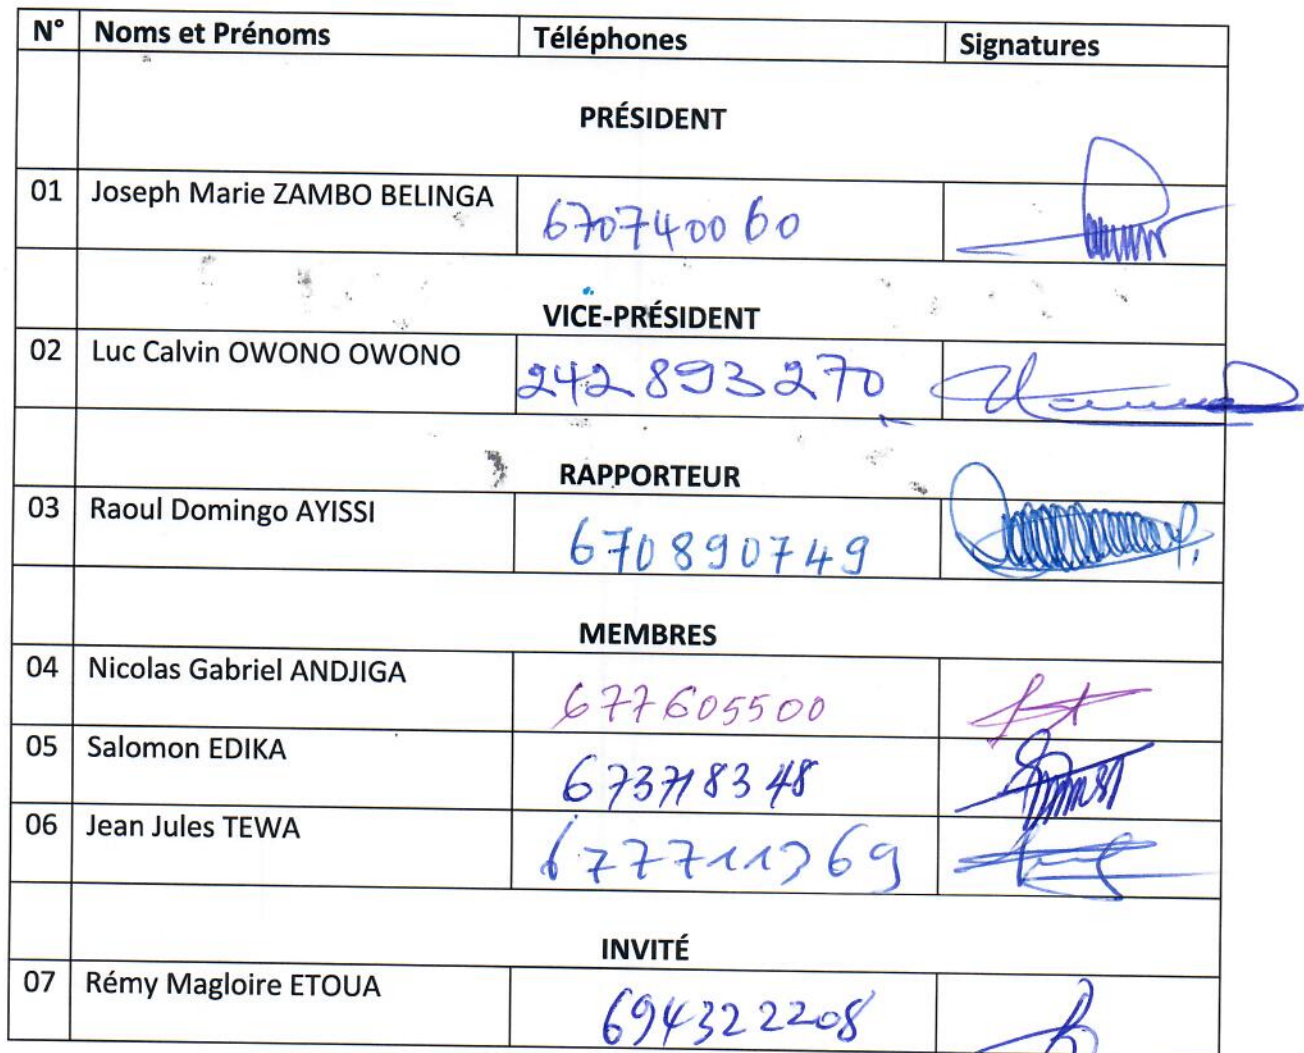 N° Noms et Prénoms Téléphones Signatures
PRÉSIDENT
01 Joseph Marie ZAMBO BELINGA 670740060
VICE-PRÉSIDENT
02 Luc Calvin OWONO OWONO 242893270
RAPPORTEUR
03 Raoul Domingo AYISSI 670890749
MEMBRES
04 Nicolas Gabriel ANDJIGA 677605500
05 Salomon EDIKA 673718348
06 Jean Jules TEWA 677711369
INVITÉ
07 Rémy Magloire ETOUA 694322208